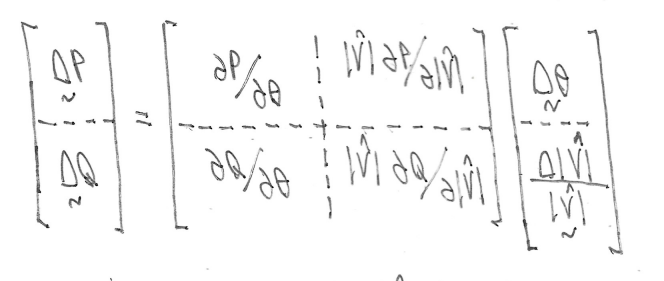 [ΔP̰ / ΔQ̰] = [∂P/∂θ ¦ |V̂| ∂P/∂|V̂| ; ∂Q/∂θ ¦ |V̂| ∂Q/∂|V̂|] [Δθ̰ / Δ|V̂|/|V̰̂|]